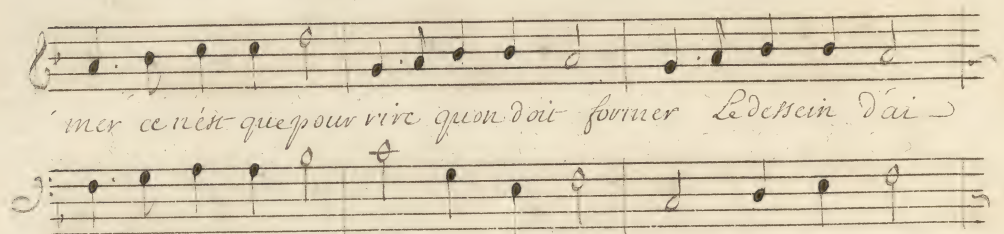 mer ce n'est que pour rire quon doit former Le dessein d'ai